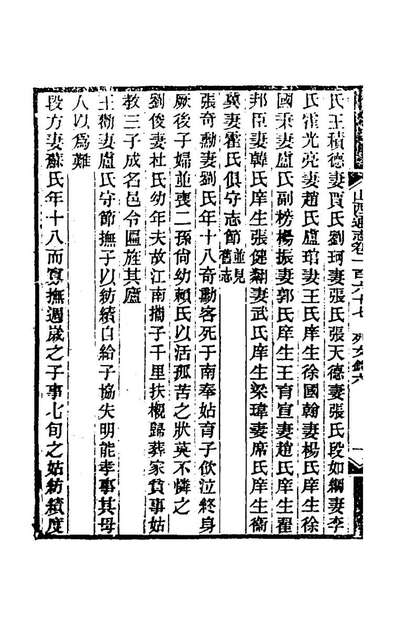 山西通志卷一百六十七 列女錄六 一
氏王積德妻賈氏劉珂妻張氏張天德妻張氏段如綱妻李
氏霍光亮妻趙氏盧琯妻王氏庠生徐國翰妻楊氏庠生徐
國秉妻盧氏副榜楊振妻郭氏庠生王育宣妻趙氏庠生翟
邦臣妻韓氏庠生張健翮妻武氏庠生梁瑋妻席氏庠生衛
奠妻霍氏俱守志節並見舊志
張奇勳妻劉氏年十八奇勳客死于南奉姑育子飲泣終身
厥後子婦並喪二孫尙幼賴氏以活孤苦之狀莫不憐之
劉俊妻杜氏幼年夫故江南攜子千里扶櫬歸葬家貧事姑
教三子成名邑令區旌其廬
王衡妻盧氏守節撫子以紡績自給子協失明能孝事其母
人以爲難
段方妻蘇氏年十八而寡撫週歲之子事七旬之姑紡績度